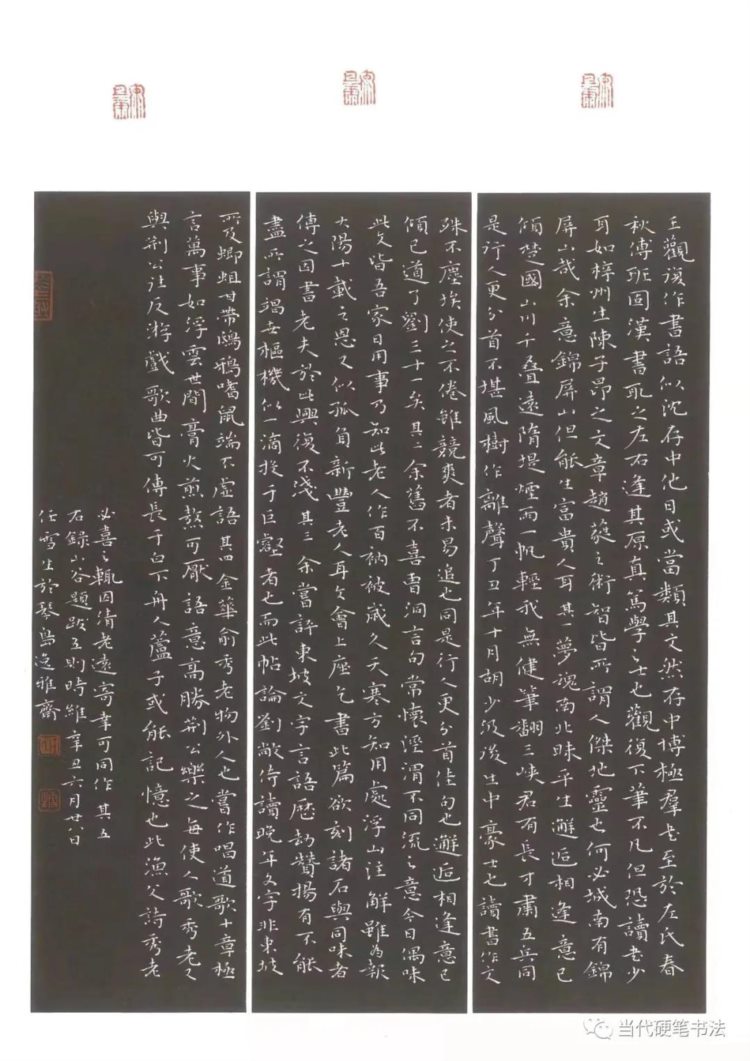 王觀復作書語似沈存中他日或當類其文然存中博極羣書至於左氏春
秋傳班固漢書取之左右逢其原真篤學之士也觀復下筆不凡但恐讀書少
耳如梓州生陳子昂之文章趙蕤之術智皆所謂人傑地靈也何必城南有錦
屏山哉余意錦屏山但能生富貴人耳其一夢魂南北昧平生邂逅相逢意已
傾楚國山川千叠遠隋堤煙雨一帆輕我無健筆翻三峽君有長才肅五兵同
是行人更分首不堪風樹作離聲丁丑年十月胡少汲後生中豪士也讀書作文
殊不塵埃使之不倦雖競爽者未易追也同是行人更分首佳句也邂逅相逢意已
傾已道了劉三十一矣其二余舊不喜曹洞言句常懷涇渭不同流之意今日偶味
此文皆吾家日用事乃知此老人作百衲被歲久天寒方知用處浮山注解雖為報
大陽十載之恩又似孤負新豐老人耳文會上座乞書此篇欲刻諸石與同味者
傳之因書老夫於此興復不淺其三余嘗評東坡文字言語歷劫贊揚有不能
盡所謂竭世樞機似一滴投于巨壑者也而此帖論劉敞侍讀晚年文字非東坡
所及蝍蛆甘帶鴟鴉嗜鼠端不虛語其四金華俞秀老物外人也嘗作唱道歌十章極
言萬事如浮雲世間膏火煎熬可厭語意高勝荊公樂之每使人歌秀老又
與荊公往反游戲歌曲皆可傳長干白下舟人蘆子或能記憶也此漁父詩秀老
必喜之輒因清老遠寄幸可同作其五
右錄山谷題跋五則時維辛丑六月廿八日
任雪生於琴島逸雅齋
当代硬笔书法